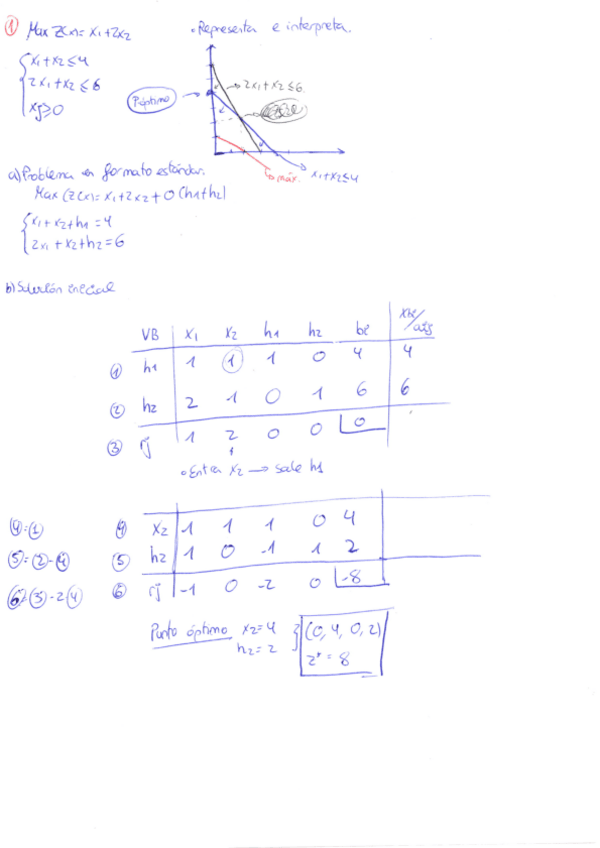 ① Max Z(x)= x1+2x2
• Representa e interpreta.
x1+x2≤4
2x1+x2≤6
xj≥0
Póptimo
2x1+x2≤6
máx.
x1+x2≤4
a) Problema en formato estándar.
Max (Z(x)= x1+2x2+0(h1+h2)
x1+x2+h1=4
2x1+x2+h2=6
b) Solución inicial
VB x1 x2 h1 h2 bi
① h1 1 1 1 0 4 4
② h2 2 1 0 1 6 6
③ rj 1 2 0 0 0
• Entra x2 → sale h1
④=① ④ x2 1 1 1 0 4
⑤=②-④ ⑤ h2 1 0 -1 1 2
⑥=③-2④ ⑥ rj -1 0 -2 0 -8
Punto óptimo x2=4 (0, 4, 0, 2)
h2=2 z*=8